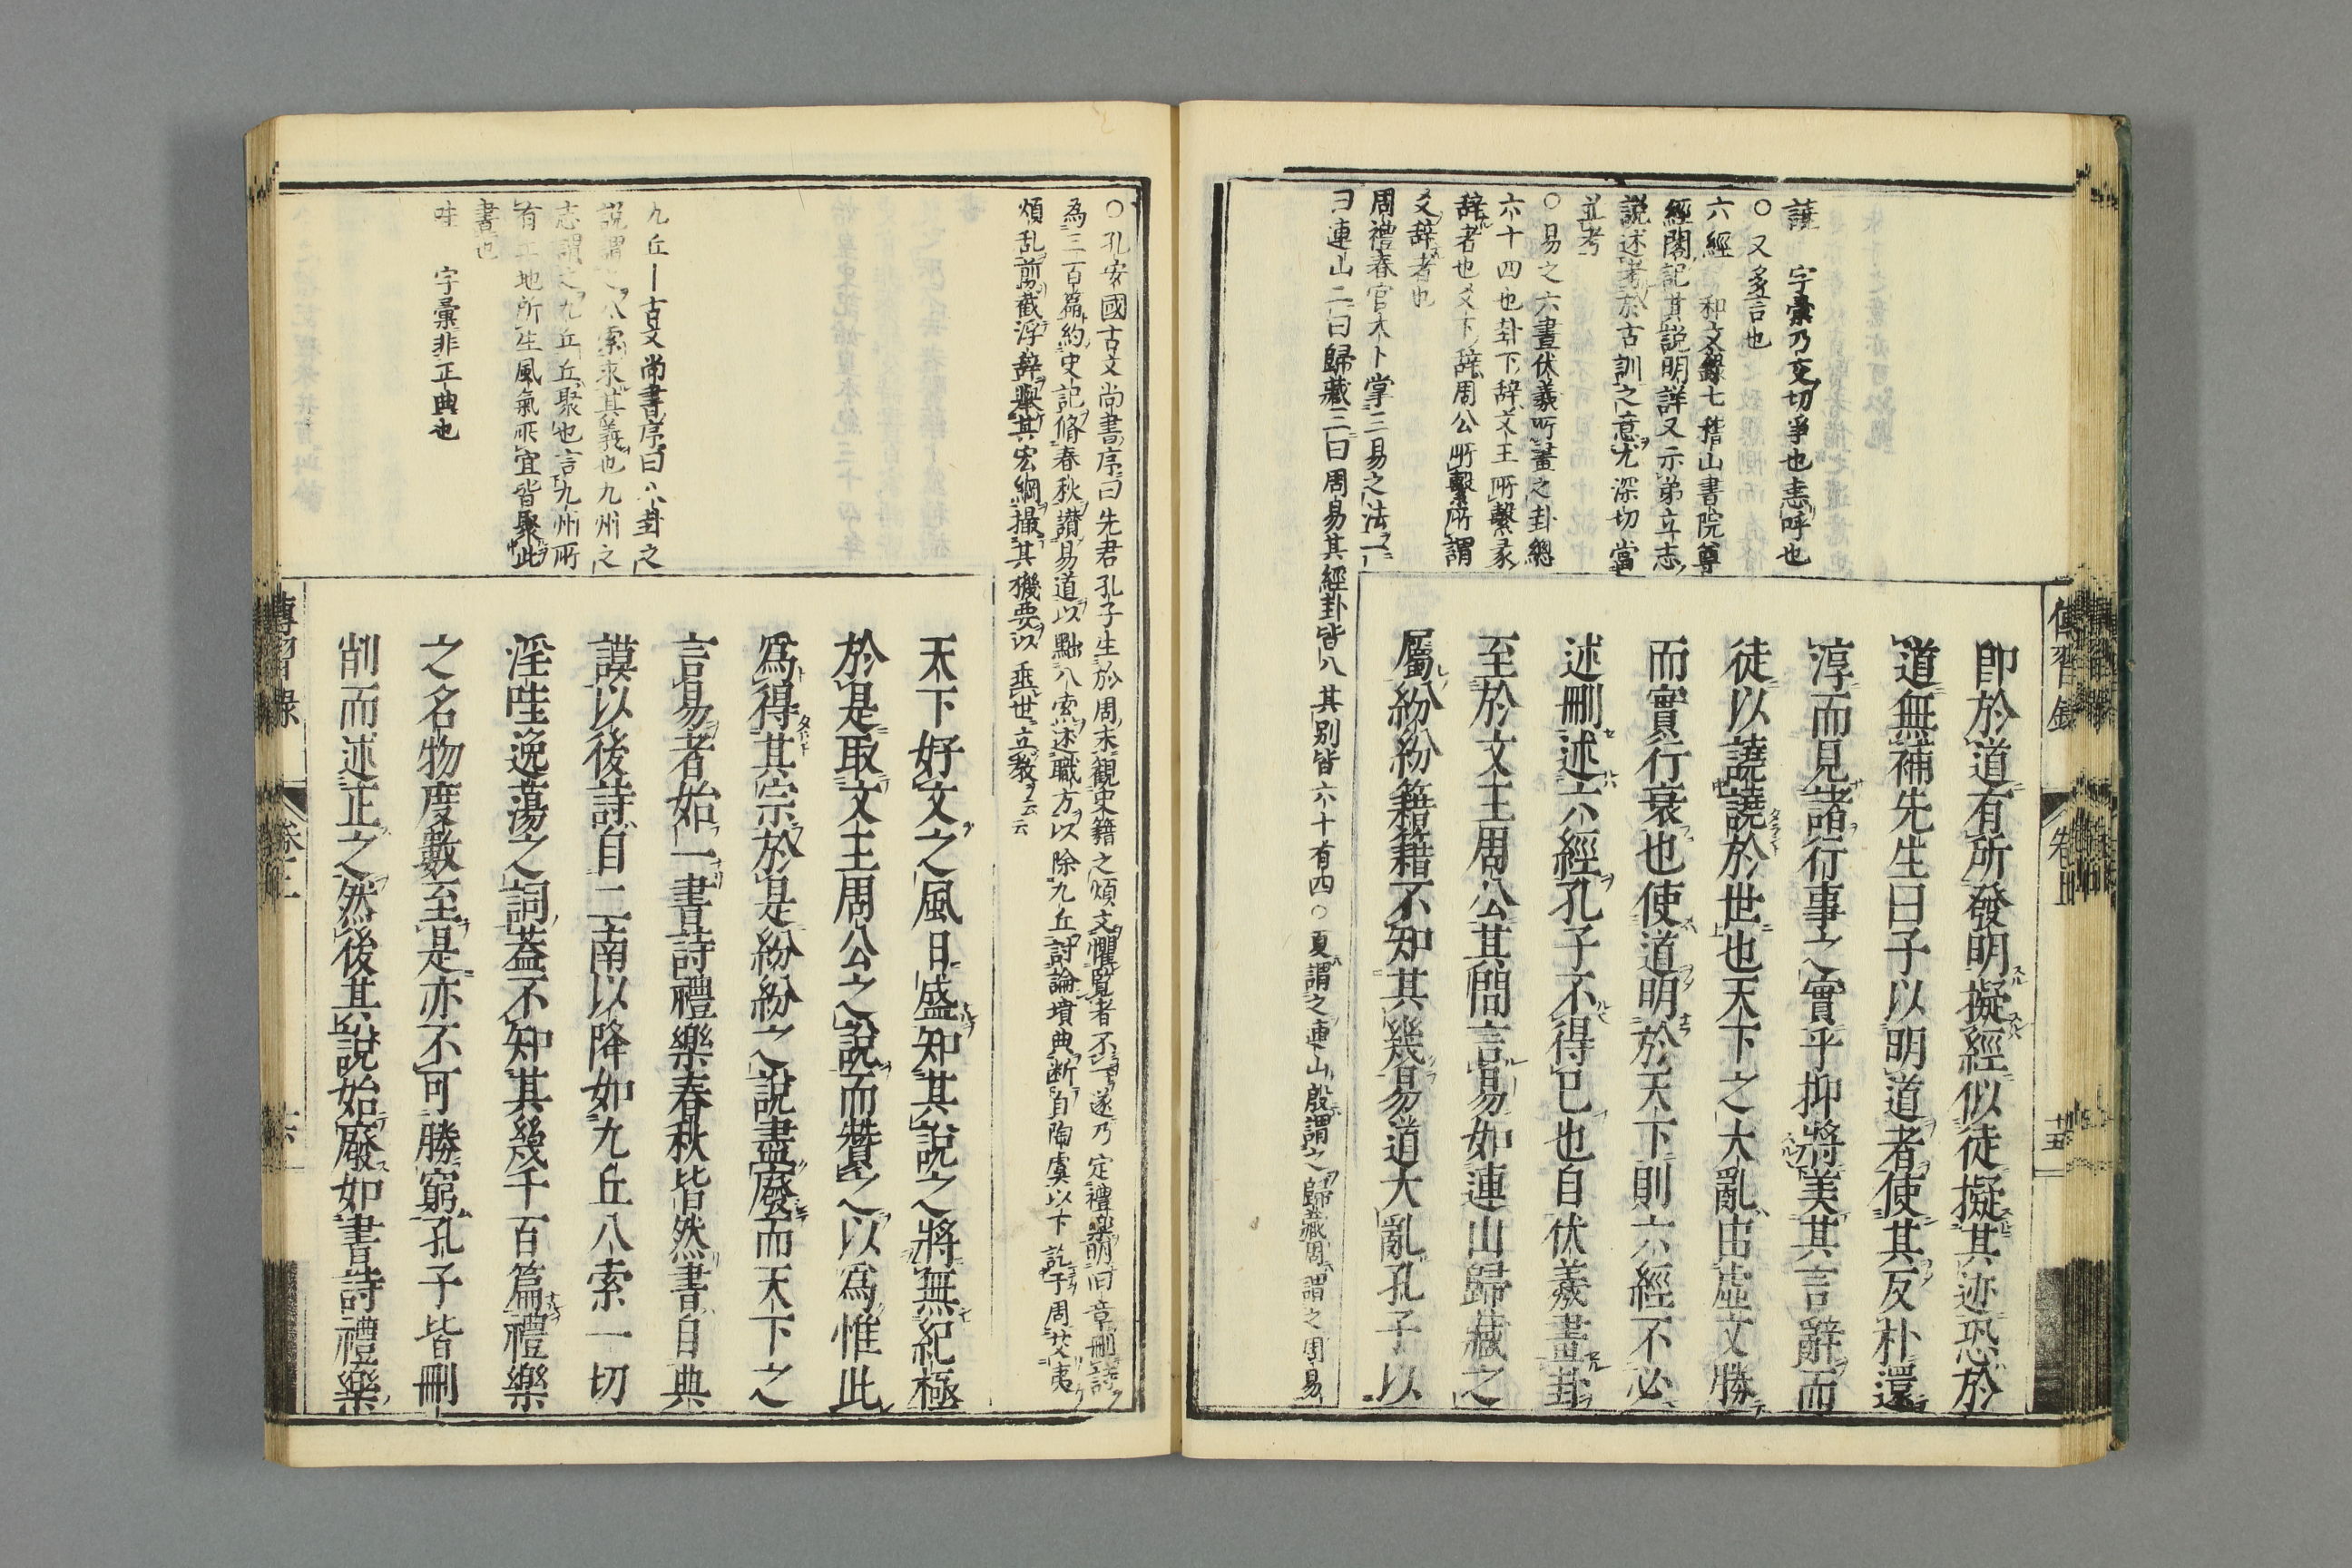 傳習錄
卷上
十五
譊　字彙乃交切爭也恚呼也
○又多言也
六經　和文錄七稽山書院尊
經閣記其說明詳又示弟立志
說述考於古訓之意尤深切當
並考
○易之六畫伏羲所畫之卦總
六十四也卦下辭文王所繫彖
辭者也爻下辭周公所繫所謂
爻辭者也
周禮春官大卜掌三易之法一
曰連山二曰歸藏三曰周易其經卦皆八其別皆六十有四○夏謂之連山殷謂之歸藏周謂之周易
卽於道有所發明擬經似徒擬其迹恐於
道無補先生曰子以明道者使其反朴還
淳而見諸行事之實乎抑將美其言辭而
徒以譊譊於世也天下之大亂由虛文勝
而實行衰也使道明於天下則六經不必
述刪述六經孔子不得已也自伏羲畫卦
至於文王周公其間言易如連山歸藏之
屬紛紛籍籍不知其幾易道大亂孔子以
○孔安國古文尚書序曰先君孔子生於周末覩史籍之煩文懼覽者不一遂乃定禮樂明旧章刪詩
為三百篇約史記脩春秋讃易道以黜八索述職方以除九丘討論墳典断自陶虞以下訖于周芟夷
煩乱剪截浮辞舉其宏綱撮其機要以垂世立教云云
九丘―古文尚書序曰八卦之
說謂之八索求其義也九州之
志謂之九丘丘聚也言九州所
有土地所生風氣所宜皆聚此
書也
哇　字彙非正典也
天下好文之風日盛知其說之將無紀極
於是取文王周公之說而贊之以爲惟此
爲得其宗於是紛紛之說盡廢而天下之
言易者始一書詩禮樂春秋皆然書自典
謨以後詩自二南以降如九丘八索一切
淫哇逸蕩之詞蓋不知其幾千百篇禮樂
之名物度數至是亦不可勝窮孔子皆刪
削而述正之然後其說始廢如書詩禮樂
傳習錄
卷上
十六